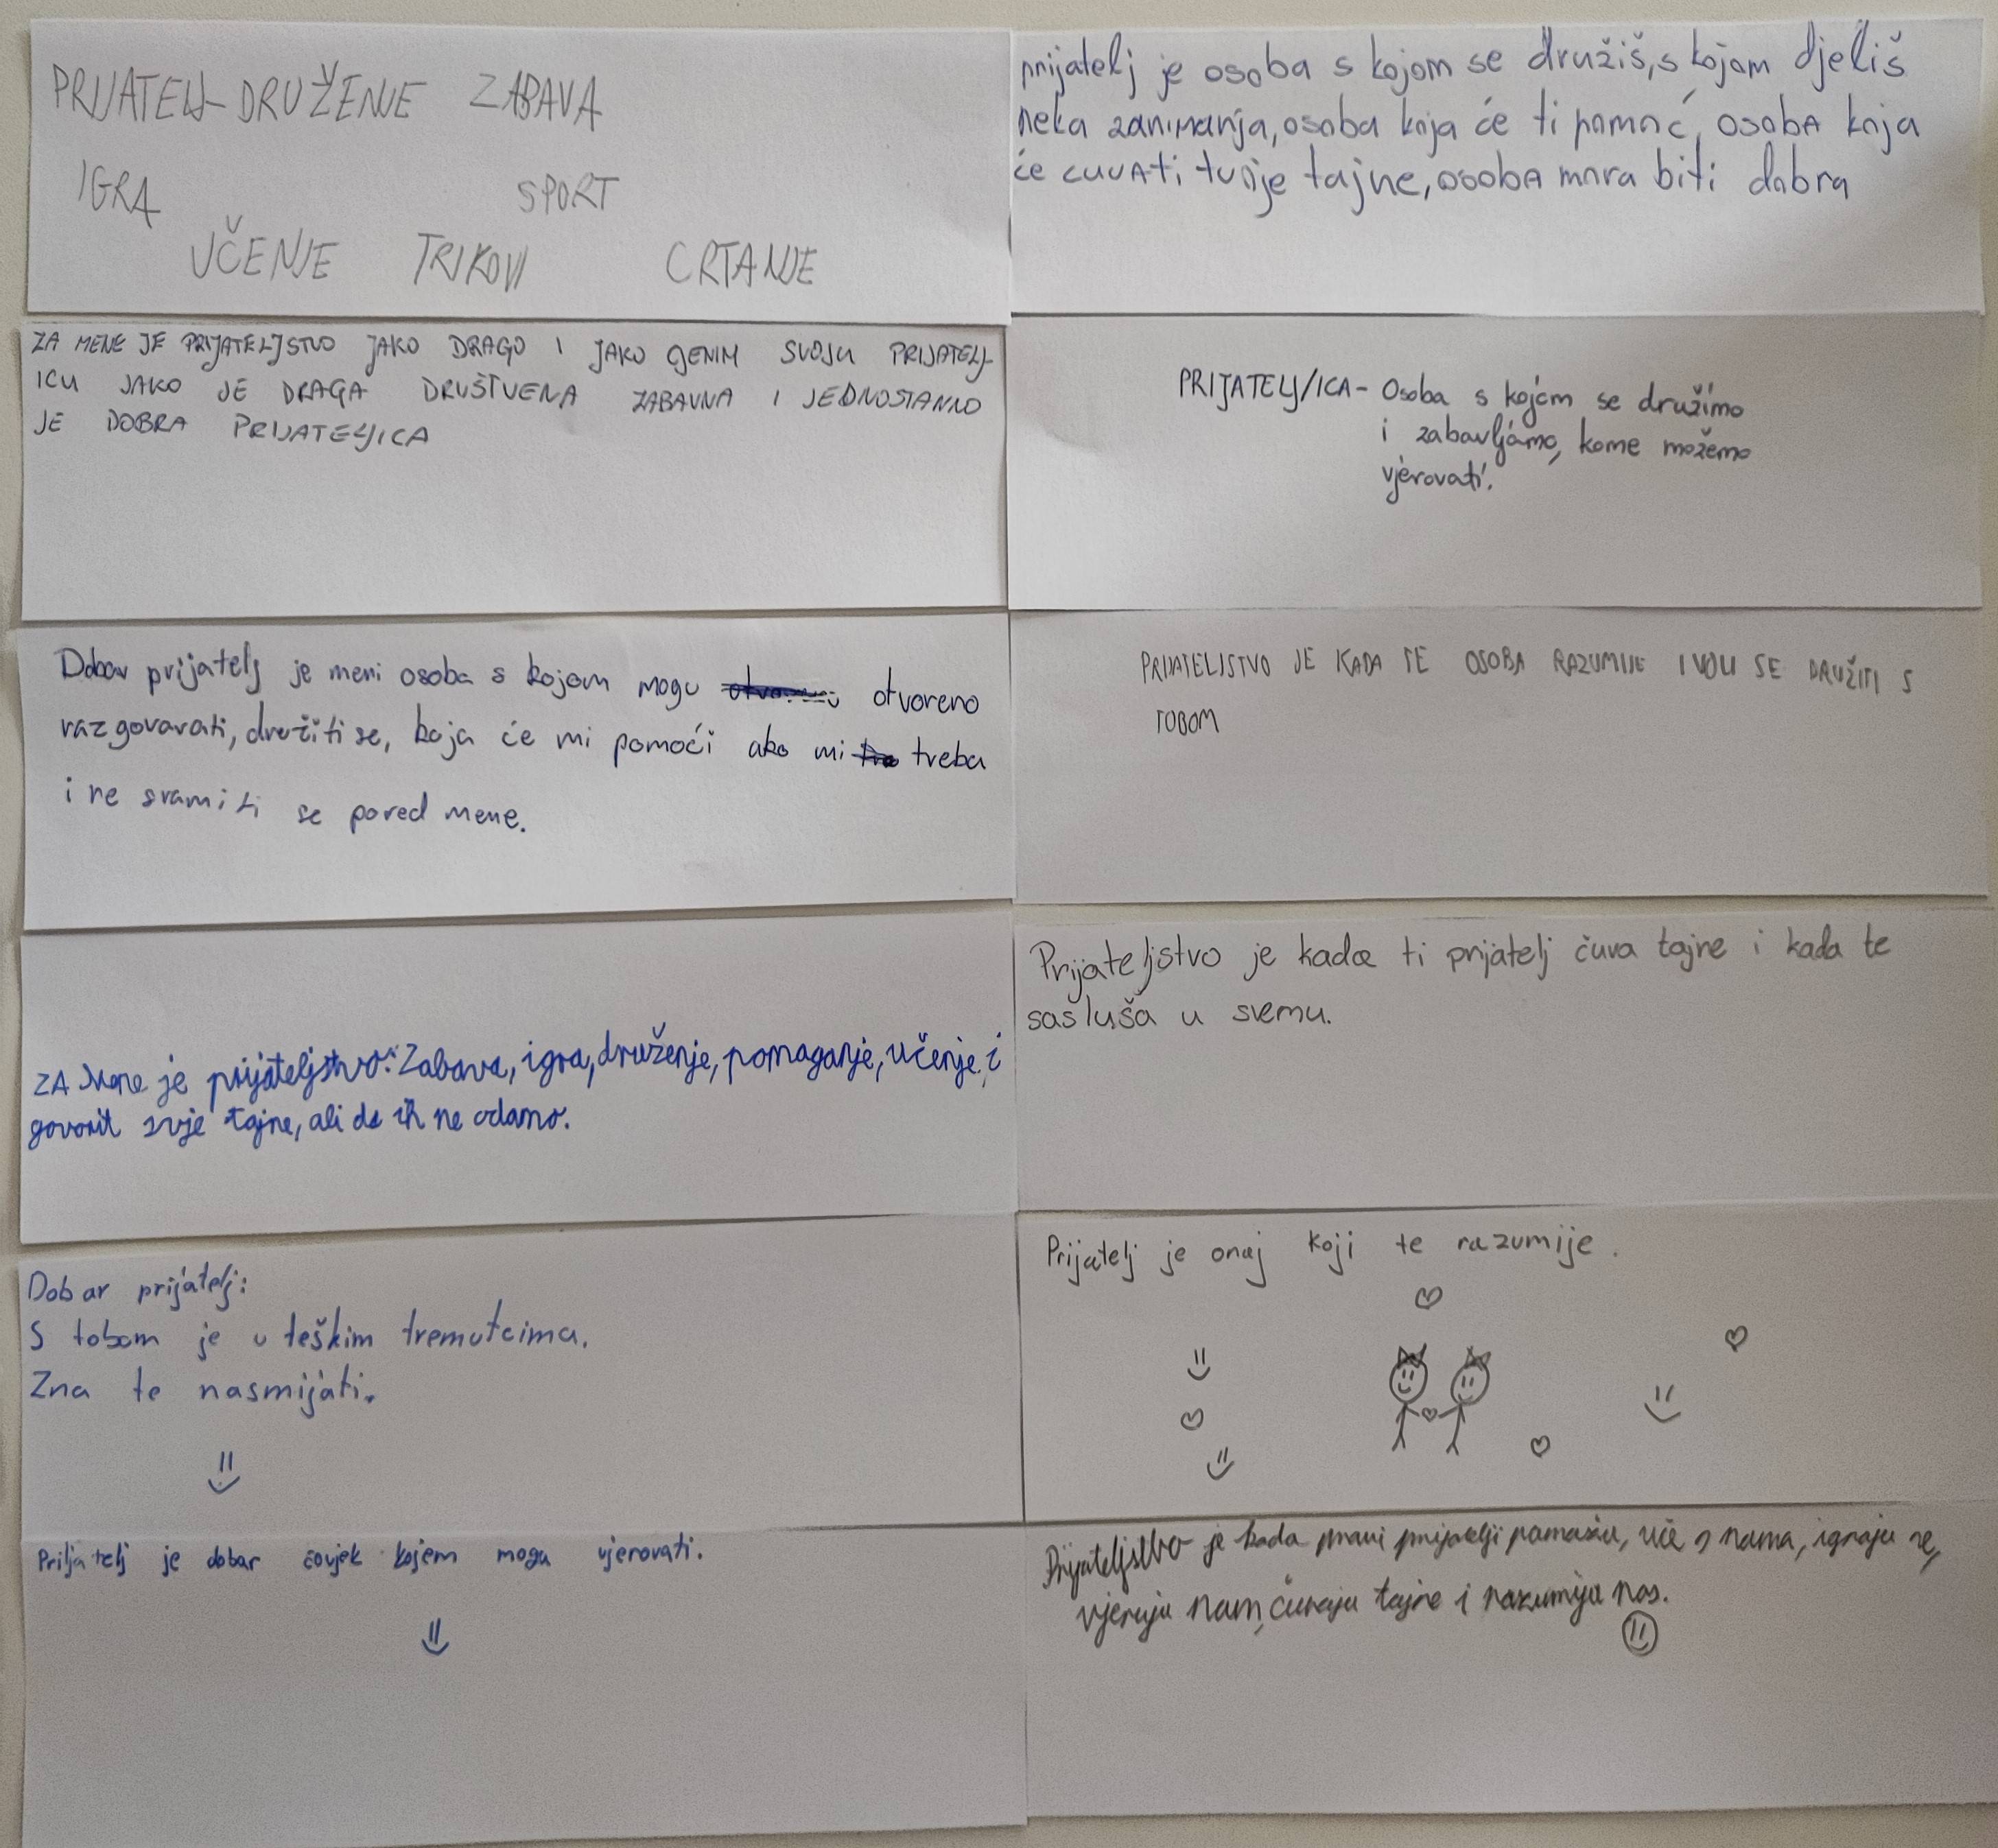 PRIJATELJ-DRUŽENJE ZABAVA
IGRA SPORT
UČENJE TRIKOVI CRTANJE
prijatelj je osoba s kojom se družiš, s kojom djeliš
neka zanimanja, osoba koja će ti pomoć, osoba koja
će cuvati tvoje tajne, osoba mora biti dobra
ZA MENE JE PRIJATELJSTVO JAKO DRAGO I JAKO CJENIM SVOJU PRIJATELJ-
ICU JAKO JE DRAGA DRUŠTVENA ZABAVNA I JEDNOSTANNO
JE DOBRA PRIJATELJICA
PRIJATELJ/ICA- Osoba s kojom se družimo
i zabavljamo, kome možemo
vjerovati.
Dobar prijatelj je meni osoba s kojom mogu otvoreno
razgovarati, družiti se, koja će mi pomoći ako mi treba
i ne sramiti se pored mene.
PRIJATELJSTVO JE KADA TE OSOBA RAZUMIJE I VOLI SE DRUŽITI S
TOBOM
ZA Mene je prijateljstvo: Zabava, igra, druženje, pomaganje, učenje, i
govorit svje tajne, ali da ih ne odamo.
Prijateljstvo je kada ti prijatelj čuva tajne i kada te
sasluša u svemu.
Dobar prijatelj:
S tobom je u teškim tremutcima.
Zna te nasmijati.
Prijatelj je onaj koji te razumije.
Priljatelj je dobar čovjek kojem mogu vjerovati.
Prijateljstvo je kada pravi prijatelji pomažu, uče s nama, igraju se,
vjeruju nam, čuvaju tajne i razumiju nas.